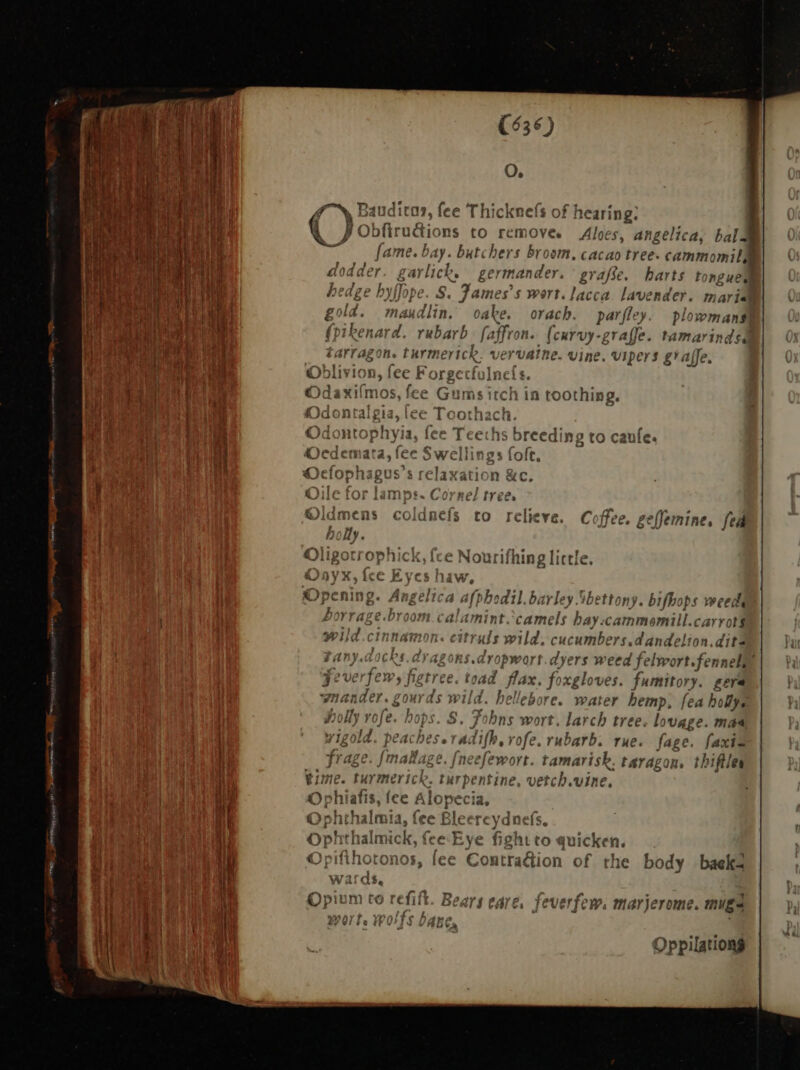 (636)
O.
OBauditas, ſee Thickneſs of hearing.
Obſtructions to remove. Aloes, angelica, bal-
ſame. bay. butchers broom. cacao tree. cammomil
dodder. garlick. germander. graſſe. harts tongue
hedge hyſſope. S. James's wort. lacca. lavender. mari
gold. maudlin. oake. orach. parſley. plowmans
ſpikenard. rubarb ſaffron. ſcurvy-graſſe. tamarinds
tarragon. turmerick. vervaine. vine. vipers graſſe.
Oblivion, ſee Forgetfulneſs.
Odaxiſmos, ſee Gums itch in toothing.
Odontalgia, ſee Toothach.
Odontophyia, ſee Teeths breeding to cauſe.
Oedemata, ſee Swellings ſoft.
Oeſophagus's relaxation &c.
Oile for lamps. Cornel tree.
Oldmens coldneſs to relieve. Coffee. geſſemine. ſea
holly.
Oligotrophick, ſee Nouriſhing little.
Onyx, ſee Eyes haw.
Opening. Angelica aſphodil. barley. bettony. biſhops weed
borrage. broom. calamint. camels hay. cammomill. carrots
wild. cinnamon. citruls wild. cucumbers. dandelion. dit-
tany. docks. dragons. dropwort. dyers weed felwort. fennel
feverfew, figtree. toad flax. foxgloves. fumitory. ger-
mander. gourds wild. hellebore. water hemp. ſea holly.
holly roſe. hops. S. Johns wort. larch tree. lovage. ma-
rigold. peaches. radiſh. roſe. rubarb. rue. ſage. ſaxi-
frage. ſmallage. ſneeſewort. tamarisk. taragon. thiſtles
time. turmerick. turpentine. vetch. vine.
Ophiaſis, ſee Alopecia.
Ophthalmia, ſee Bleereydneſs.
Ophthalmick, ſee Eye ſight to quicken.
Opiſthotonos, ſee Contraction of the body back-
wards.
Opium to reſiſt. Bears eare. feverfew. marjerome. mug-
wort. wolfs bane.
Oppilations